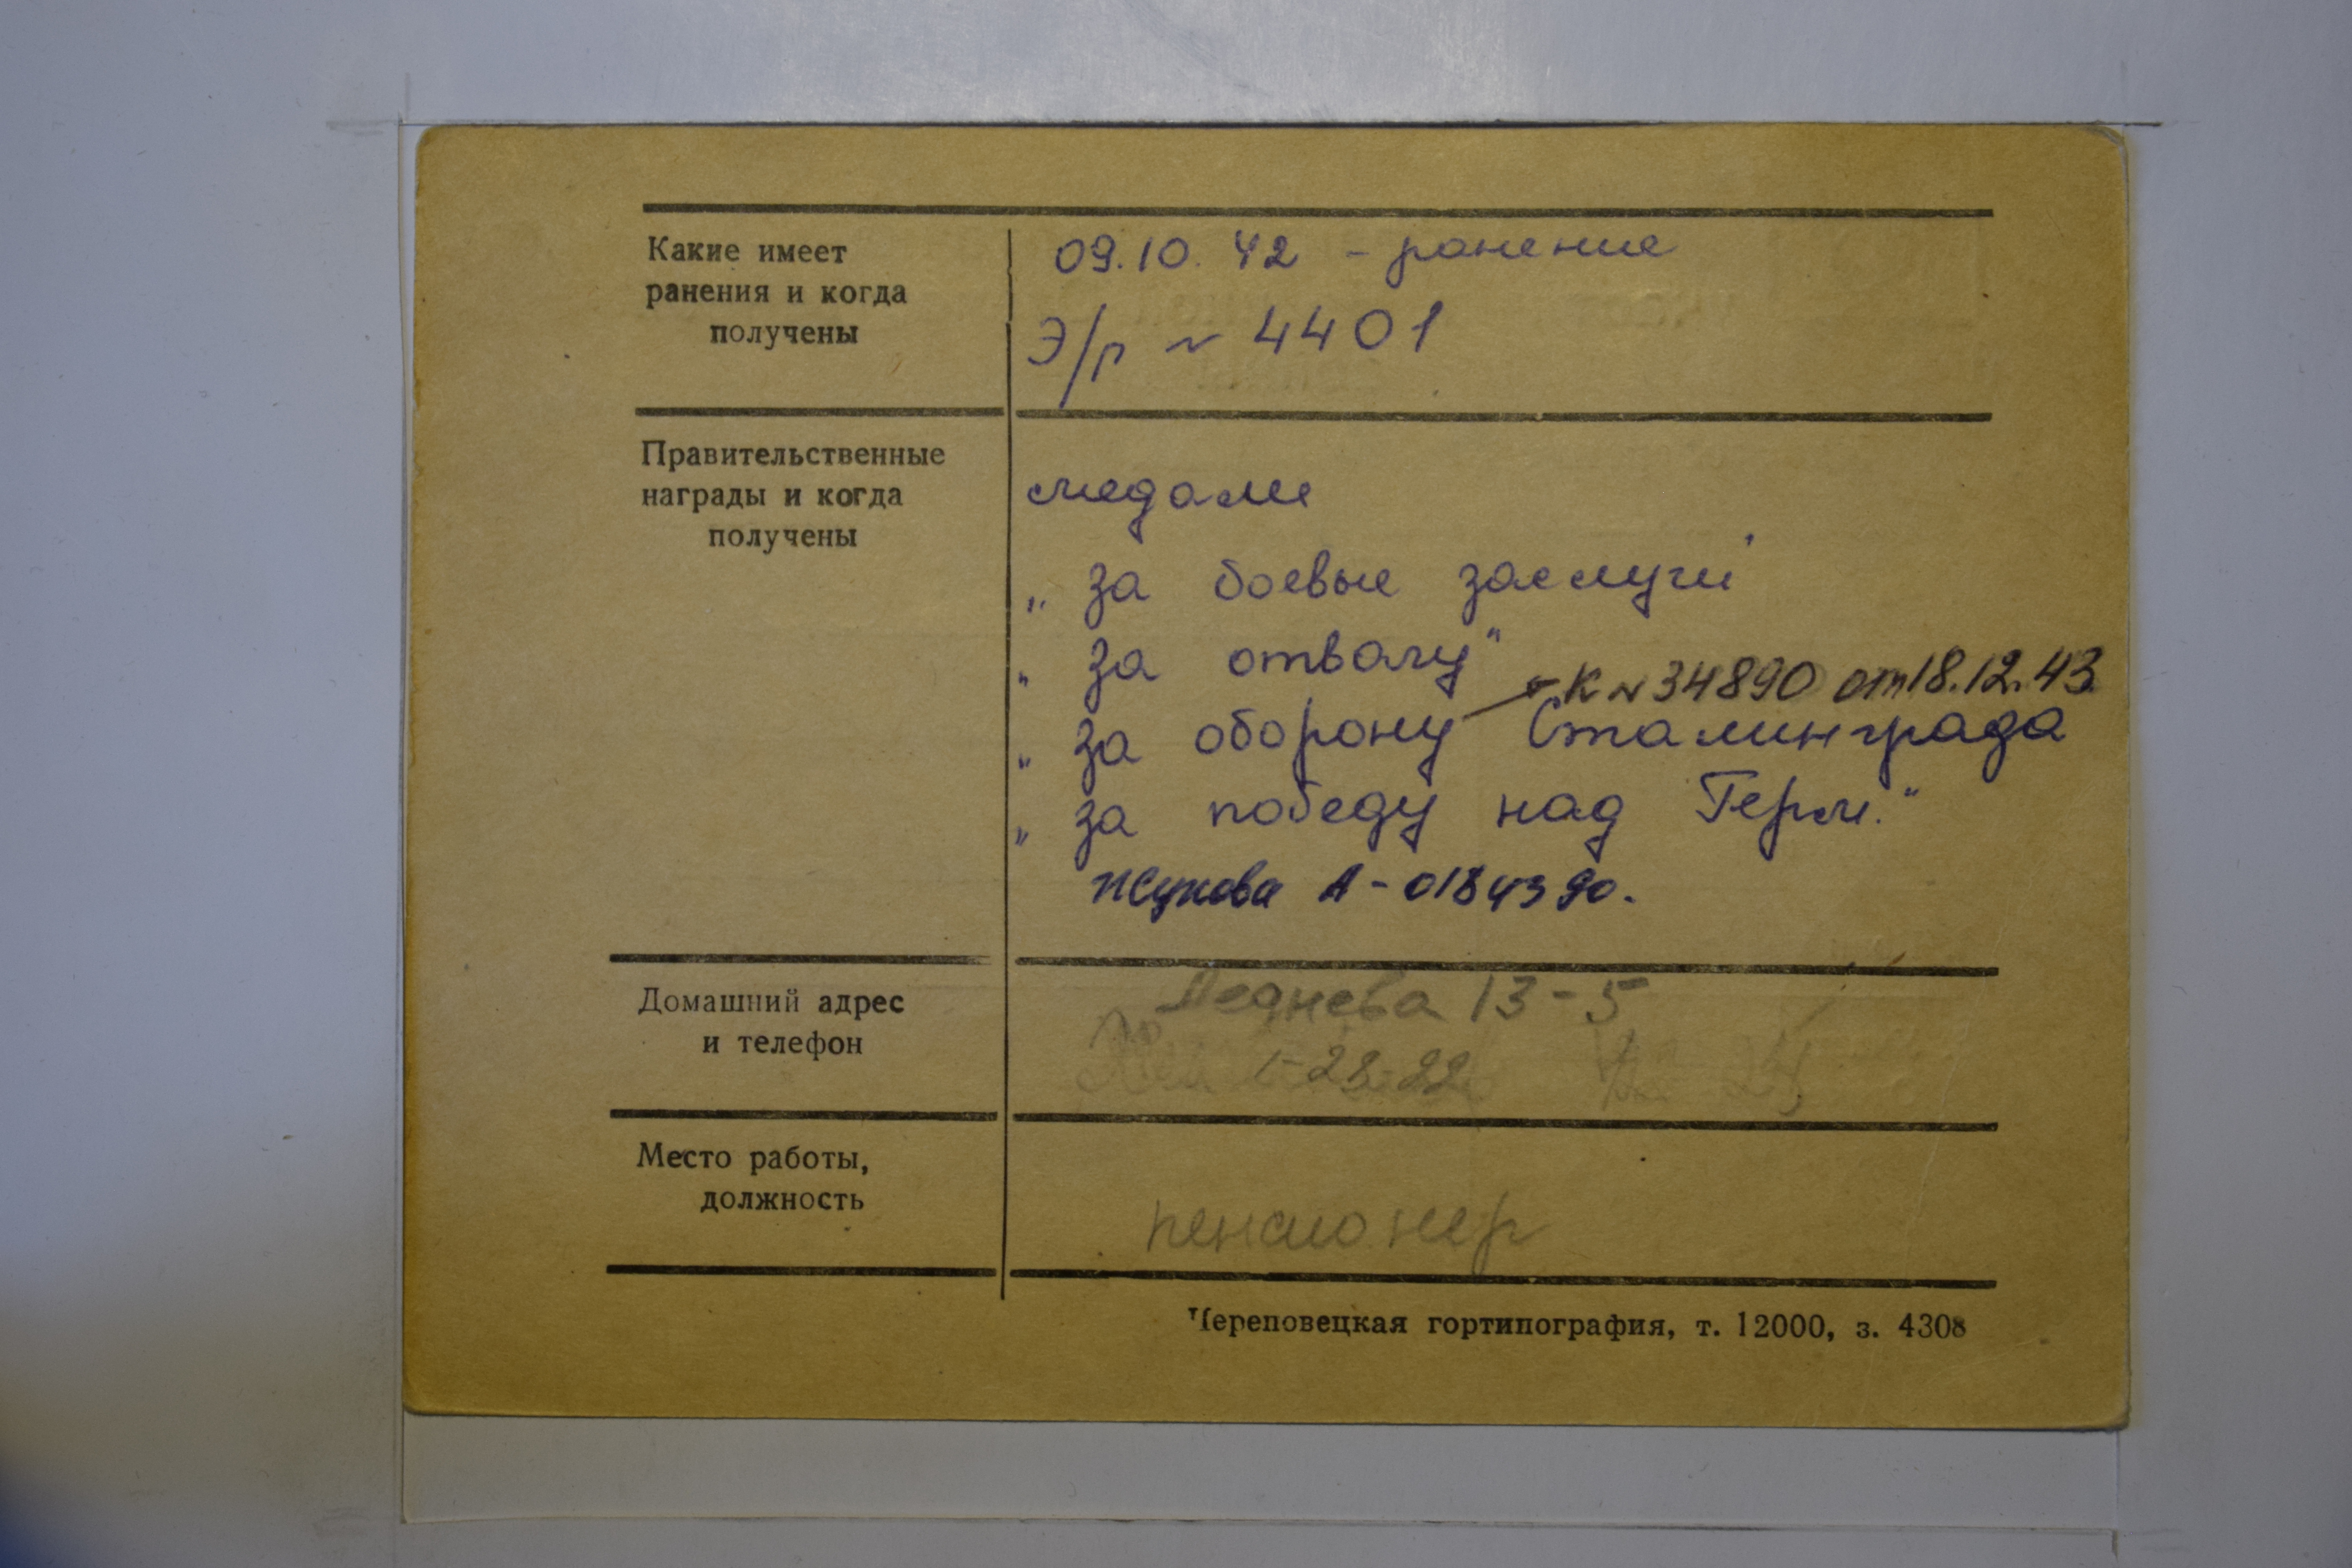 Какие имеет
ранения и когда
получены
09.10.42 - ранение
Э/р № 4401
Правительственные
награды и когда
получены
медали
„за боевые заслуги"
„за отвагу"
К № 34890 от 18.12.43
„за оборону Сталинграда
„за победу над Герм."
Жукова А-0184390.
Домашний адрес
и телефон
Леднева 13-5
Место работы,
должность
пенсионер
Череповецкая гортипография, т. 12000, з. 4308